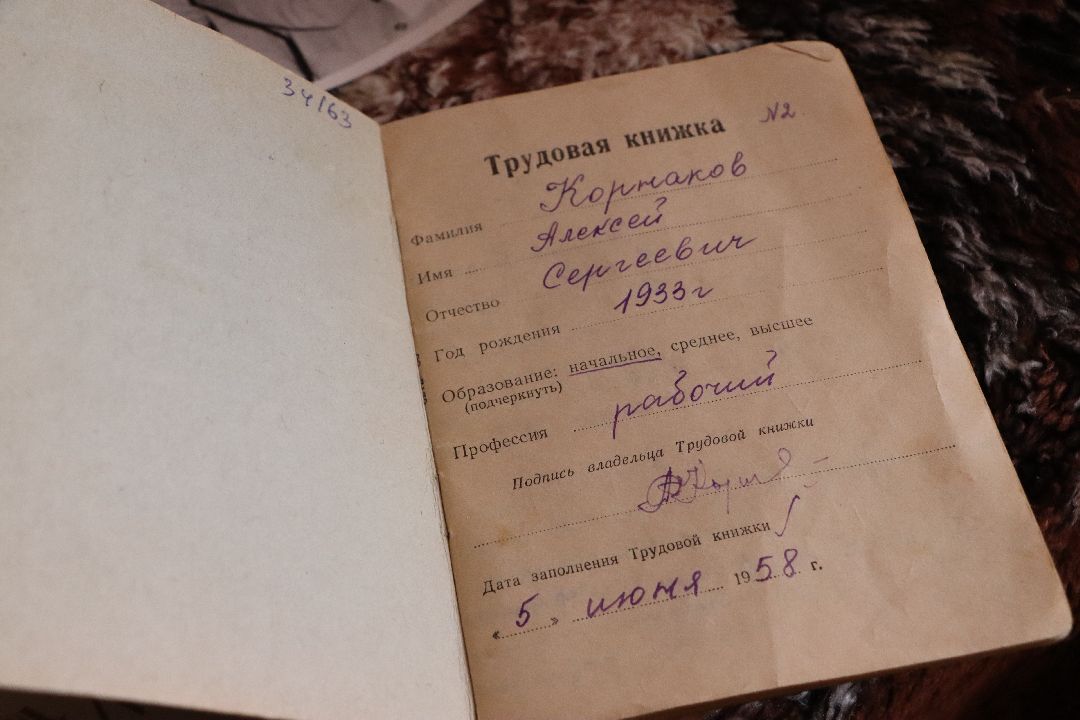 34/63
Трудовая книжка N2
Фамилия Корнаков
Имя Алексей
Отчество Сергеевич
Год рождения 1933 г
Образование: начальное, среднее, высшее
(подчеркнуть)
Профессия рабочий
Подпись владельца Трудовой книжки
Дата заполнения Трудовой книжки
« 5 » июня 1958 г.